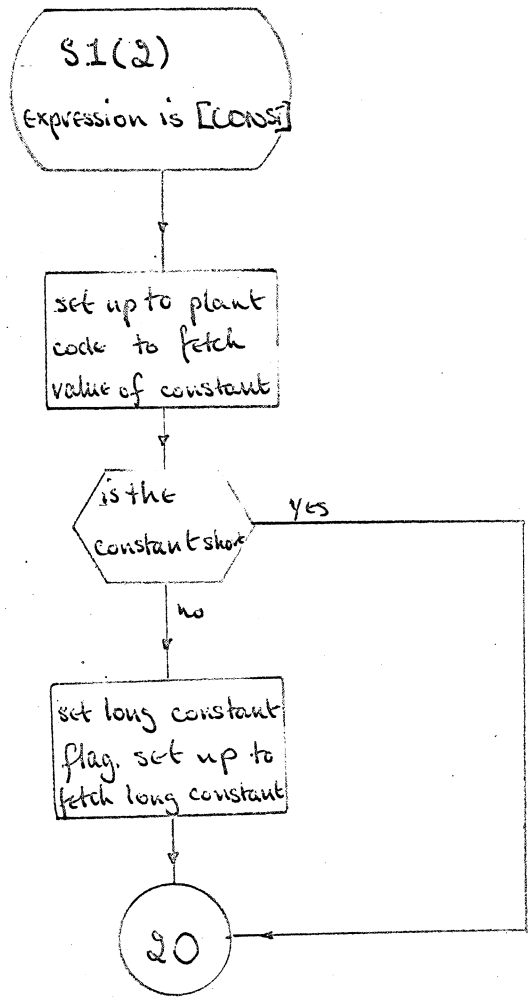 S1(2)
Expression is [CONST]
set up to plant
code to fetch
value of constant
is the
constant short
YES
no
set long constant
flag. set up to
fetch long constant
20